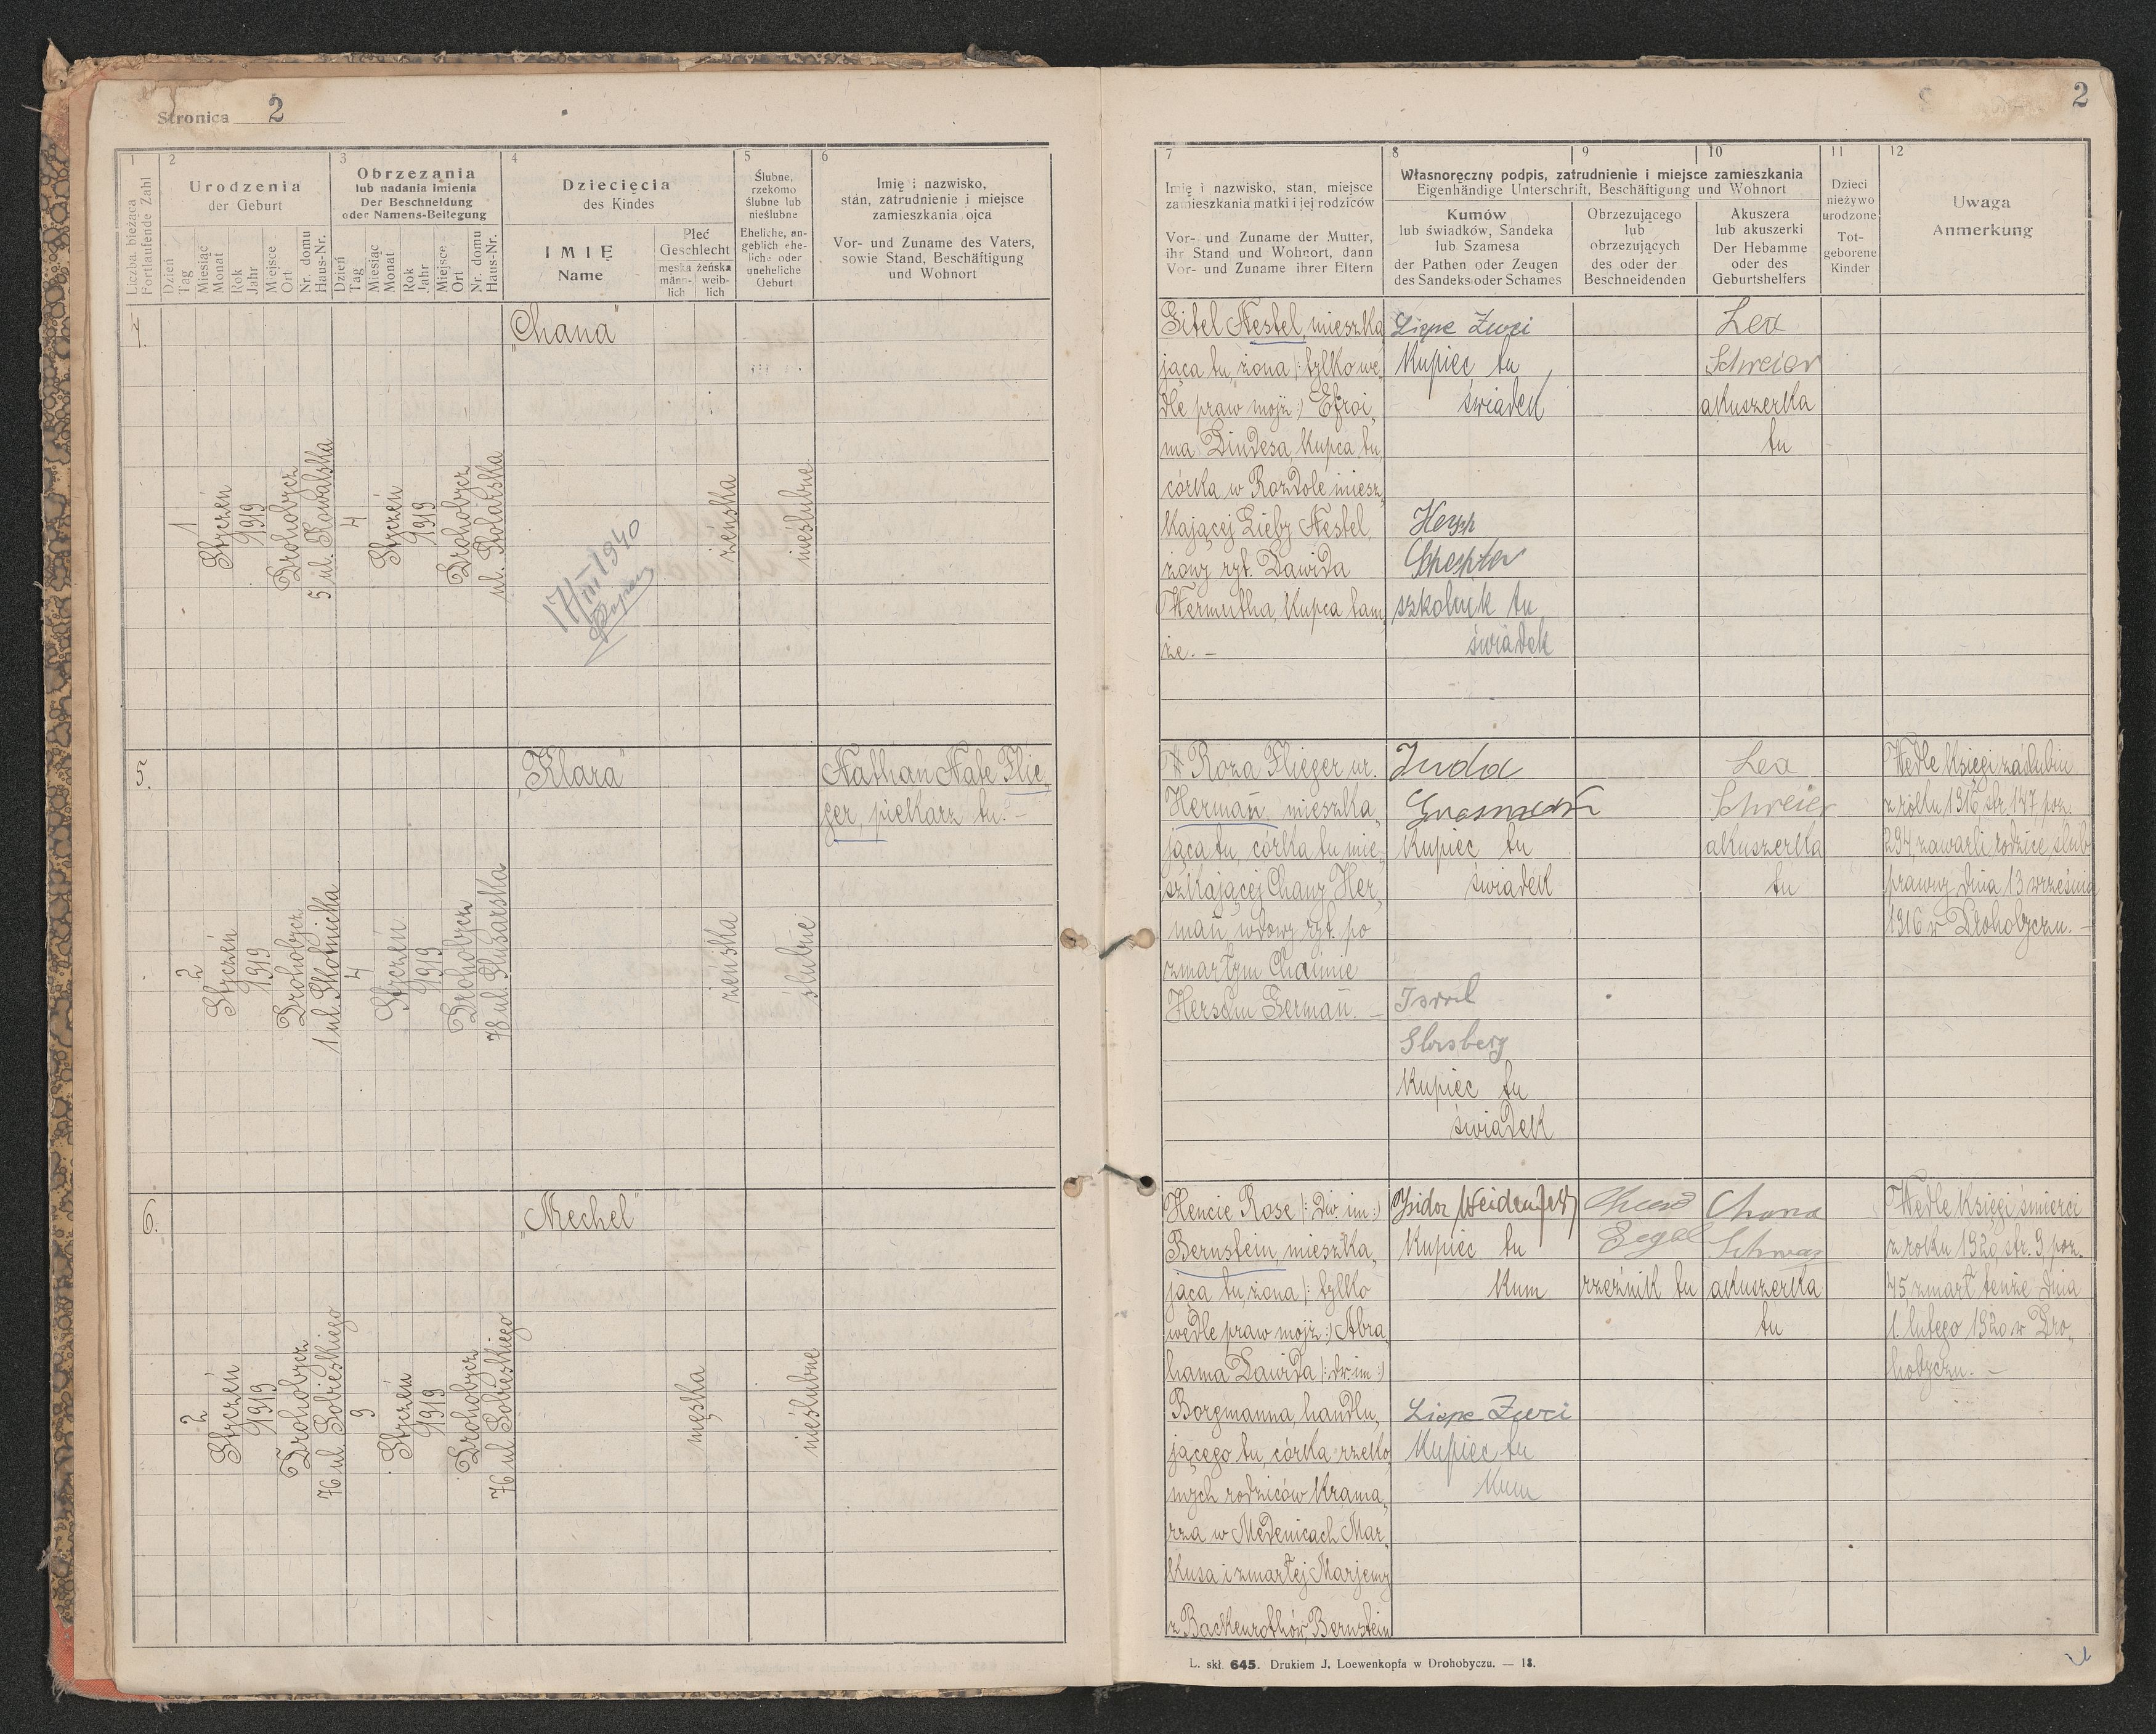 Stronica 2
2
1
2
3
4
5
6
Liczba bieżąca
Fortlaufende Zahl
Urodzenia
der Geburt
Dzień
Tag
Miesiąc
Monat
Rok
Jahr
Miejsce
Ort
Nr. domu
Haus-Nr.
Obrzezania
lub nadania imienia
Der Beschneidung
oder Namens-Beilegung
Dzień
Tag
Miesiąc
Monat
Rok
Jahr
Miejsce
Ort
Nr. domu
Haus-Nr.
Dziecięcia
des Kindes
IMIĘ
Name
Płeć
Geschlecht
męska
männ-
lich
żeńska
weib-
lich
Ślubne,
rzekomo
ślubne lub
nieślubne
Eheliche, an-
geblich ehe-
liche oder
uneheliche
Geburt
Imię i nazwisko,
stan, zatrudnienie i miejsce
zamieszkania ojca
Vor- und Zuname des Vaters,
sowie Stand, Beschäftigung
und Wohnort
7
8
9
10
11
12
Imię i nazwisko, stan, miejsce
zamieszkania matki i jej rodziców
Vor- und Zuname der Mutter,
ihr Stand und Wohnort, dann
Vor- und Zuname ihrer Eltern
Własnoręczny podpis, zatrudnienie i miejsce zamieszkania
Eigenhändige Unterschrift, Beschäftigung und Wohnort
Kumów
lub świadków, Sandeka
lub Szamesa
der Pathen oder Zeugen
des Sandeks oder Schames
Obrzezującego
lub
obrzezujących
des oder der
Beschneidenden
Akuszera
lub akuszerki
Der Hebamme
oder des
Geburtshelfers
Dzieci
nieżywo
urodzone
Tot-
geborene
Kinder
Uwaga
Anmerkung
4.
1
Styczeń
1919
Drohobycz
5 ul. Kowalska
4
Styczeń
1919
Drohobycz
ul. Stolarska
"Chana"
17/III 1940
żeńska
nieślubne
Gitel Nestel, mieszka
jąca tu, żona /: tylko we,
dle praw mojż :/ Efroi,
ma Dindesa, kupca tu,
córka w Rozdole miesz,
kającej Lieby Nestel,
żony ryt. Dawida
Wermutha, kupca tam,
że. —
Lippe Zwei
kupiec tu
świadek
Hersh
Schechter
szkolnik tu
świadek
Lea
Schreier
akuszerka
tu
5.
2
Styczeń
1919
Drohobycz
1 ul. Skotnicka
4
Styczeń
1919
Drohobycz
78 ul. Ślusarska
"Klara"
żeńska
ślubne
Nathan Nate Flie,
ger, piekarz tu. —
Roza Flieger ur.
Herman, mieszka,
jąca tu, córka tu mie,
szkającej Chany Her,
man, wdowy ryt. po
zmarłym Chaimie
Herschu German. —
Juda
kupiec tu
świadek
kupiec tu
świadek
Lea
Schreier
akuszerka
tu
Wedle Księgi zaślubin
z roku 1916 str. 147 poz.
294, zawarli rodzice ślub
prawny dnia 13 września
1916 w Drohobyczu. —
6.
2
Styczeń
1919
Drohobycz
76 ul. Sobieskiego
9
Styczeń
1919
Drohobycz
76 ul. Sobieskiego
"Mechel"
męska
nieślubne
Hencie Rose /: dw. im :/
Bernstein, mieszka,
jąca tu, żona /: tylko
wedle praw mojż :/ Abra,
hama Dawida /: dw. im :/
Borgmanna, handlu,
jącego tu, córka rzeko,
mych rodziców krama,
rza w Medenicach Mar,
kusa i zmarłej Marjemy
z Backenrothów Bernstein
Isidor Weidenfeld
kupiec tu
kum
Lippe Zwei
kupiec tu
kum
Segal
rzeźnik tu
Chana
Schwarz
akuszerka
tu
Wedle Księgi śmierci
z roku 1920 str. 9 poz.
45 zmarł tenże dnia
1. lutego 1920 w Dro,
hobyczu. —
L. skł. 645. Drukiem J. Loewenkopfa w Drohobyczu. — 18.